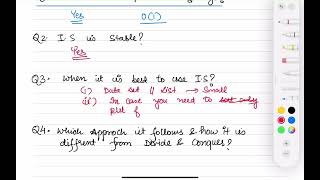 Yes O(1)
Q2. I.S is stable?
Yes
Q3. When it is best to use I.S?
(i) Data set 4 list → Small
(ii) In case you need to sort only
plct f
Q4. Which Approch it follows & how it is
diffrent from Devide & Conquer?